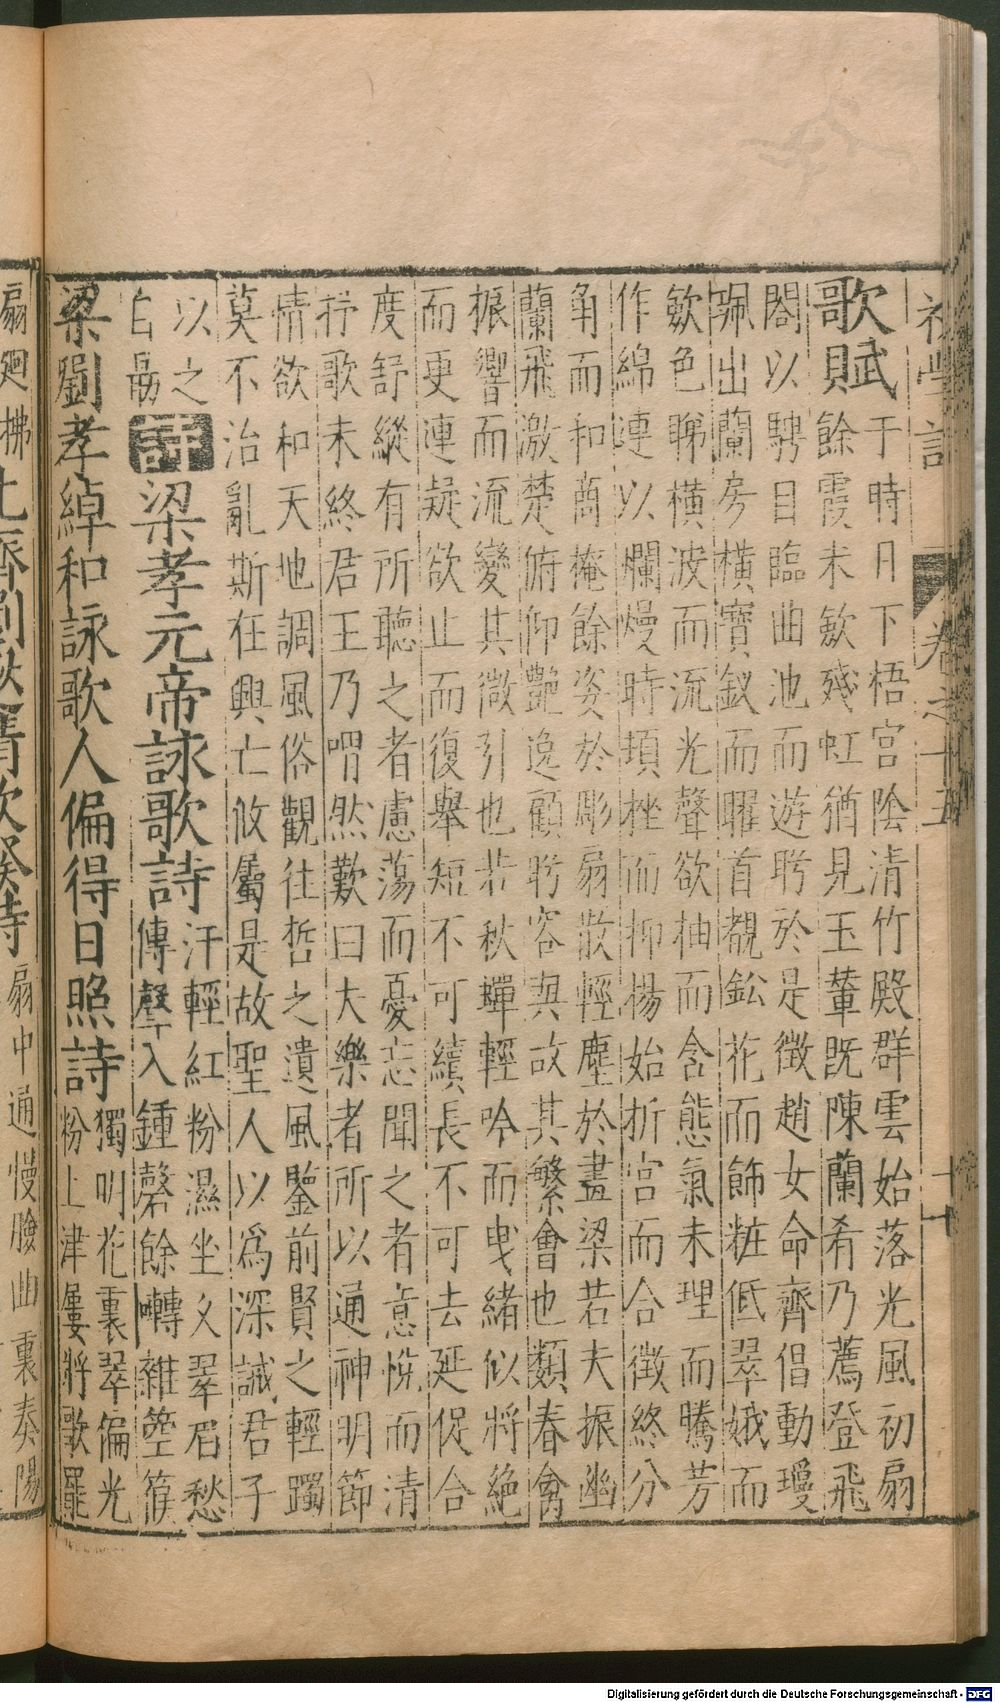 初學記 卷之十五 十一
歌賦 于時日下梧宮陰清竹殿群雲始落光風初扇
餘霞未斂殘虹猶見玉輦既陳蘭肴乃薦登飛
閣以騁目臨曲池而遊眄於是徵趙女命齊倡動瓊
珮出蘭房橫寶釵而曜首靚鈆花而飾粧低翠娥而
斂色睇橫波而流光聲欲抽而含態氣未理而騰芳
作綿連以爛熳時頓挫而抑揚始折宮而合徵終分
角而和商掩餘姿於彫扇散輕塵於畫梁若夫振幽
蘭飛激楚俯仰艷逸顧眄容與故其繁會也類春禽
振響而流變其微引也若秋蟬輕吟而曳緒似將絕
而更連疑欲止而復舉短不可續長不可去延促合
度舒縱有所聽之者慮蕩而憂忘聞之者意悅而清
抒歌未終君王乃喟然歎曰夫樂者所以通神明節
情欲和天地調風俗觀往哲之遺風鑒前賢之輕躅
莫不治亂斯在興亡攸屬是故聖人以為深誡君子
以之
自勗 詩 梁孝元帝詠歌詩 汗輕紅粉濕坐久翠眉愁
傳聲入鍾磬餘囀雜箜篌
梁劉孝綽和詠歌人偏得日照詩 獨明花裏翠偏光
粉上津屢將歌罷
扇廻拂 扇中通慢臉曲裏奏陽
Digitalisierung gefördert durch die Deutsche Forschungsgemeinschaft - DFG